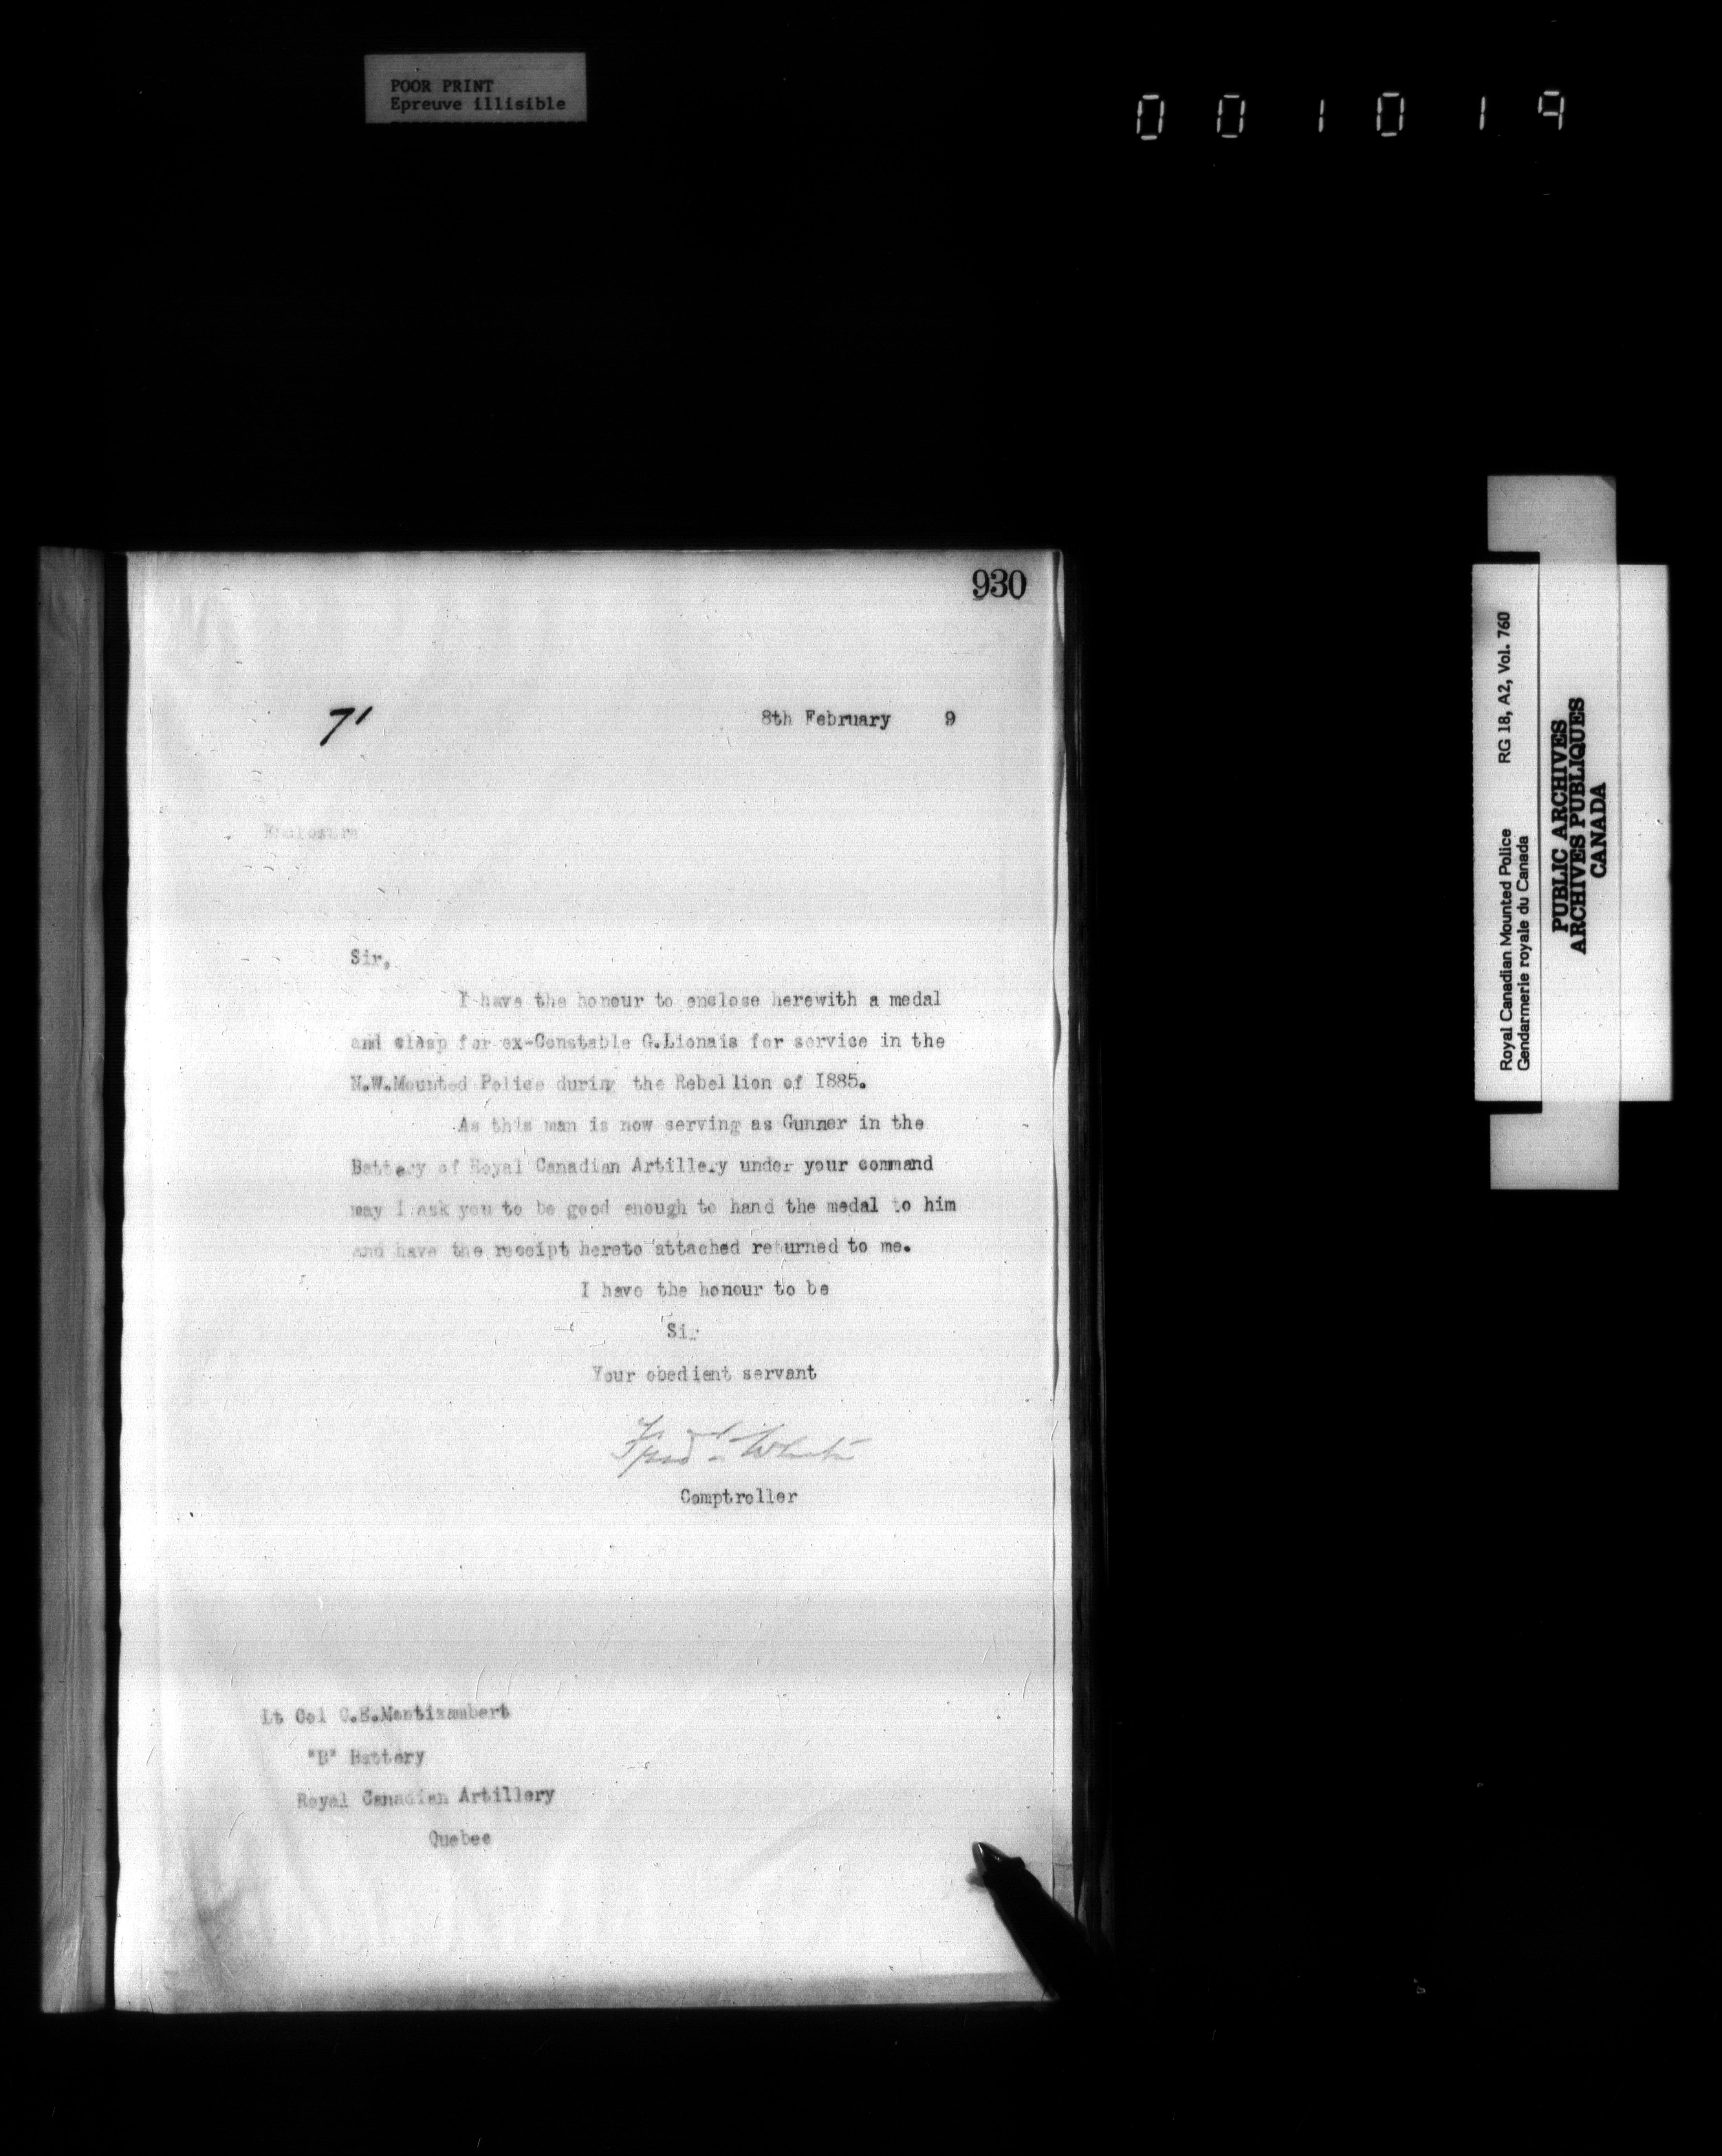 POOR PRINT
Epreuve illisible
001019
930
71
8th February 9
Enclosure
Sir,
I have the honour to enclose herewith a medal
and clasp for ex-Constable G.Lionais for service in the
N.W.Mounted Police during the Rebellion of 1885.
As this man is now serving as Gunner in the
Battery of Royal Canadian Artillery under your command
may I ask you to be good enough to hand the medal to him
and have the receipt hereto attached returned to me.
I have the honour to be
Sir
Your obedient servant
Fred White
Comptroller
Lt Col C.E.Montizambert
"B" Battery
Royal Canadian Artillery
Quebec
Royal Canadian Mounted Police RG 18, A2, Vol. 760
Gendarmerie royale du Canada
PUBLIC ARCHIVES
ARCHIVES PUBLIQUES
CANADA